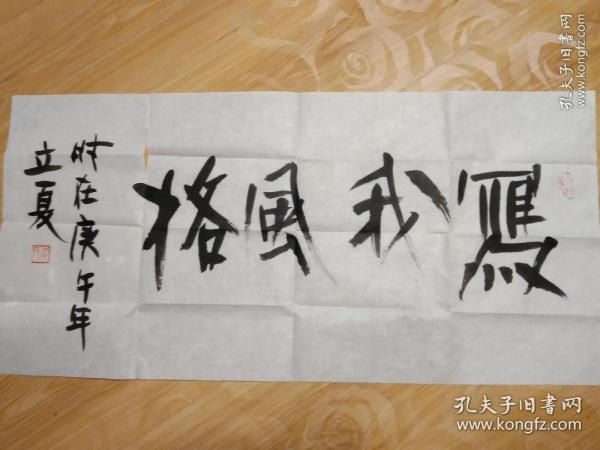 寫我風格
时在庚午年
立夏
孔夫子旧书网
www.kongfz.com
孔夫子旧书网
www.kongfz.com